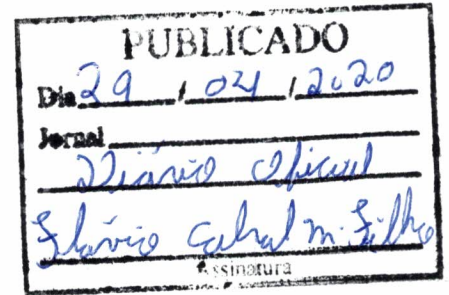 PUBLICADO
Dia 29 / 04 / 2020
Jornal
Diário Oficial
Flávio Cabral M. Filho
Assinatura